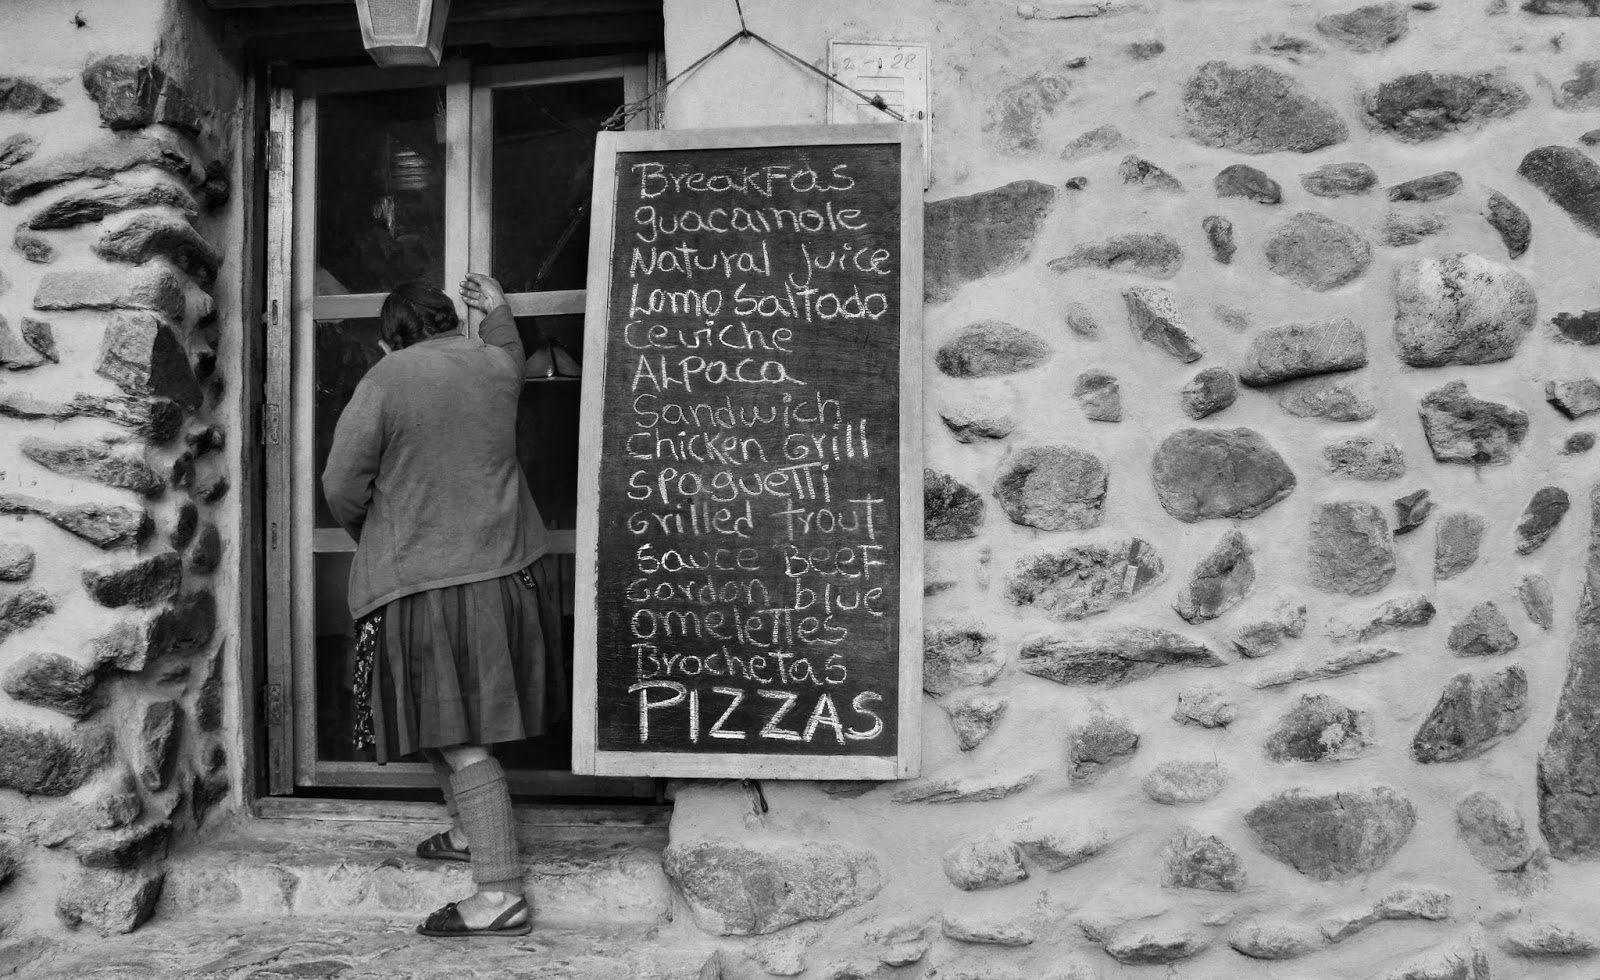 BreakFas
guacamole
Natural juice
Lomo Saltado
Ceviche
ALPaca
Sandwich
Chicken Grill
spaguetti
Grilled trout
Sauce BeeF
Gordon blue
omelettes
Brochetas
PIZZAS